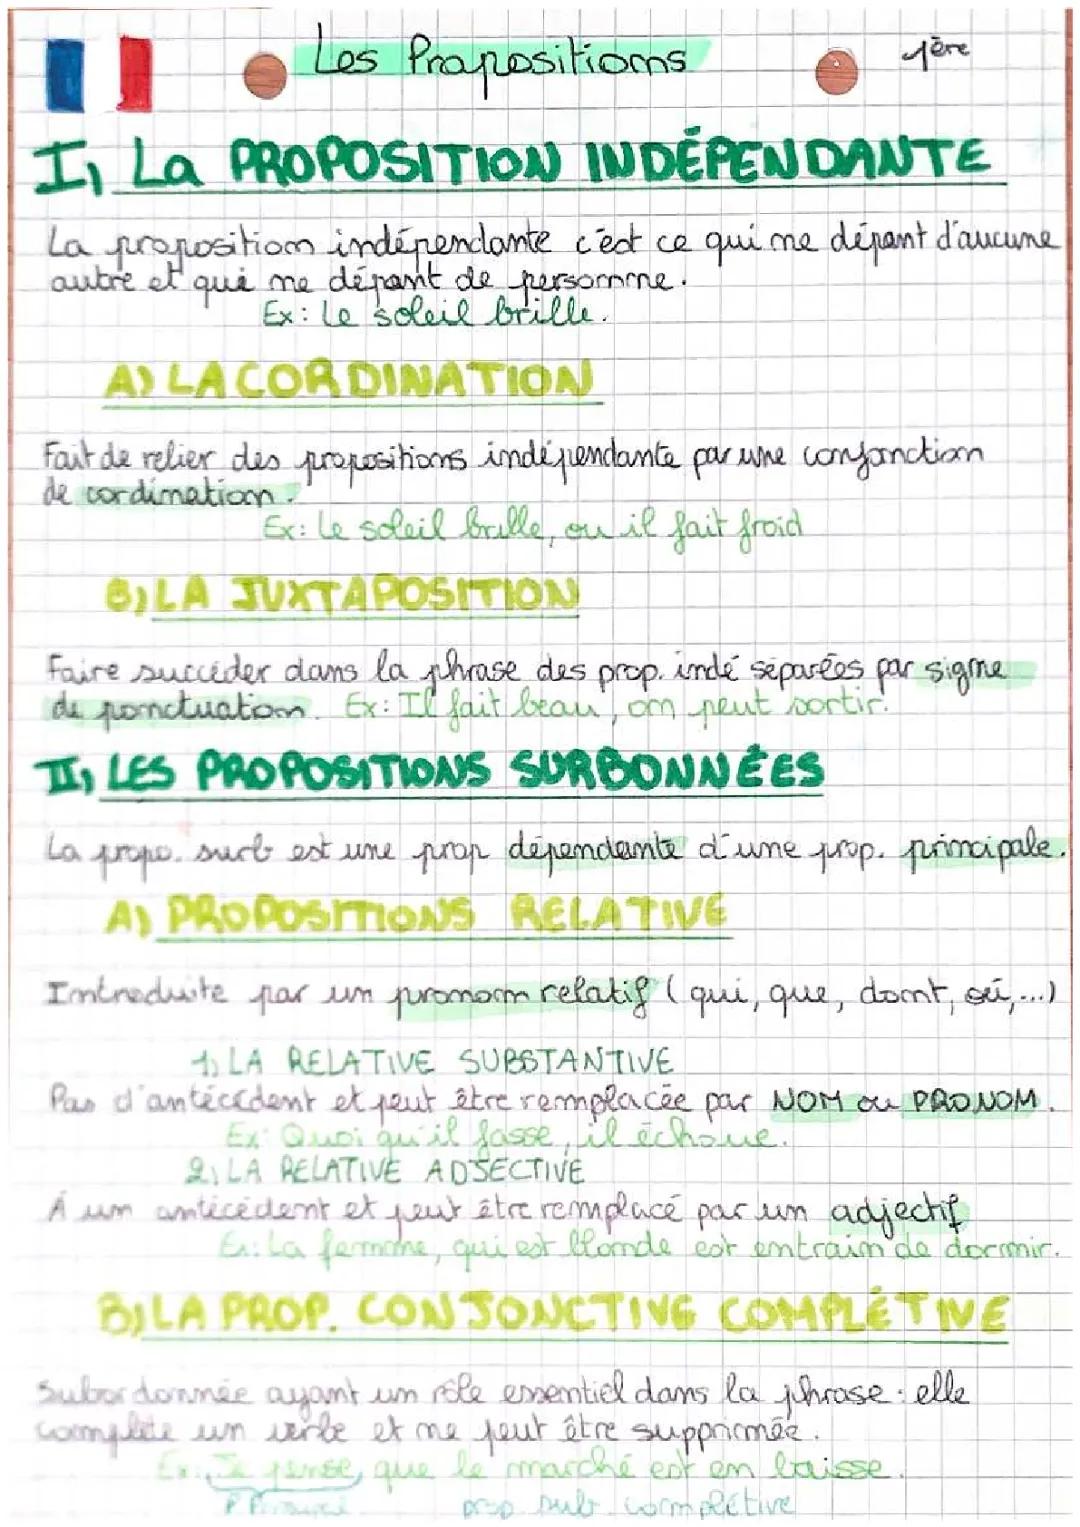 Les Propositions
1ère
I, La PROPOSITION INDÉPENDANTE
La proposition indépendante c'est ce qui ne dépant d'aucune
autre et qui ne dépant de personne.
Ex: Le soleil brille.
A) LA CORDINATION
Fait de relier des propositions indépendante par une conjonction
de cordination.
Ex: Le soleil brille, ou il fait froid
B) LA JUXTAPOSITION
Faire succéder dans la phrase des prop. indé séparées par signe
de ponctuation. Ex: Il fait beau, on peut sortir.
II, LES PROPOSITIONS SURBONNÉES
La propo. surb est une prop dépendante d'une prop. principale.
A) PROPOSITIONS RELATIVE
Introduite par un pronom relatif (qui, que, dont, où,...)
1) LA RELATIVE SUBSTANTIVE
Pas d'antécédent et peut être remplacée par NOM ou PRONOM.
Ex: Quoi qu'il fasse, il échoue.
2) LA RELATIVE ADJECTIVE
À un antécédent et peut être remplacé par un adjectif
Ex: La femme, qui est blonde est entrain de dormir.
B) LA PROP. CONJONCTIVE COMPLÉTIVE
Subordonnée ayant un rôle essentiel dans la phrase : elle
complète un verbe et ne peut être supprimée.
Ex: Je pense, que le marché est en baisse.
prop sub complétive